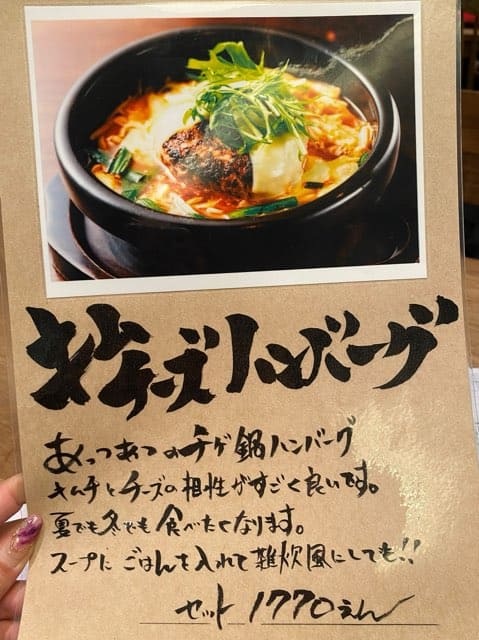 キムチーズハンバーグ
あっつあつのチゲ鍋ハンバーグ
キムチとチーズの相性がすごく良いです。
夏でも冬でも食べたくなります。
スープにごはんを入れて雑炊風にしても!!
セット 1770えん